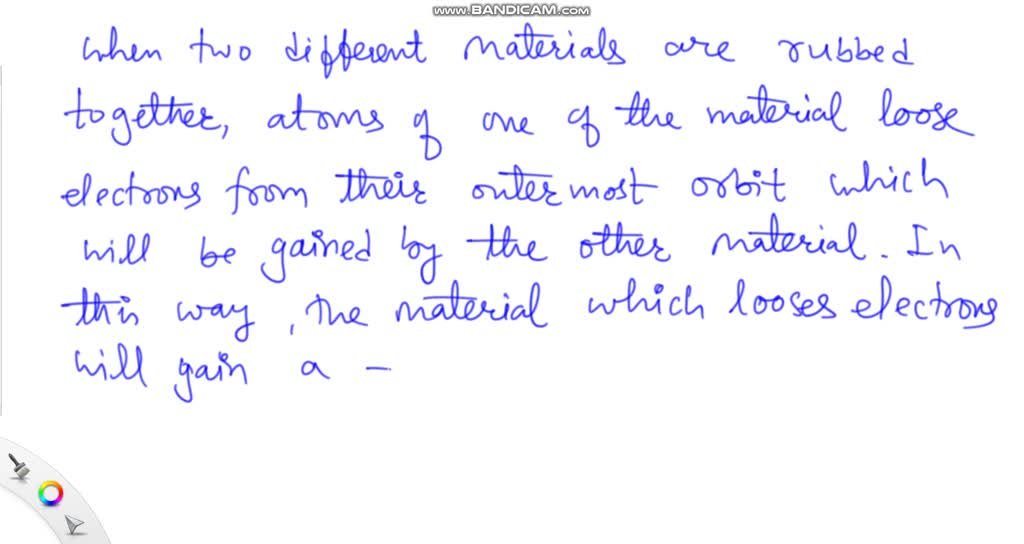 www.BANDICAM.com
when two different materials are rubbed
together, atoms of one of the material loose
electrons from their outermost orbit which
will be gained by the other material. In
this way, the material which looses electrons
will gain a -